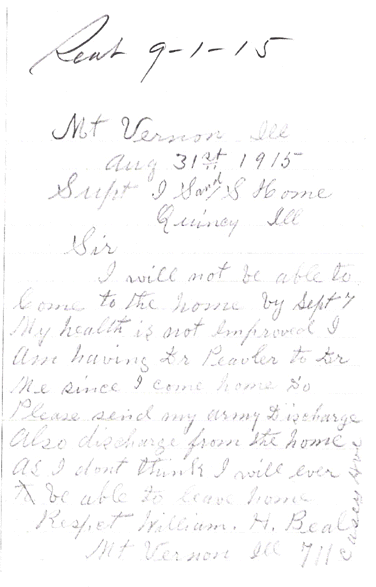 Recd 9-1-15
Mt Vernon Ill
Aug 31st 1915
Supt I S and S Home
Quincy Ill
Sir
I will not be able to
Come to the home by Sept 7
My health is not Improved I
Am having Dr Peavler to Dr
Me since I come home So
Please send my army Discharge
Also discharge from the home
As I dont think I will ever
be able to leave home
Respct William. H. Beal
Mt Vernon Ill 711
Casey Ave